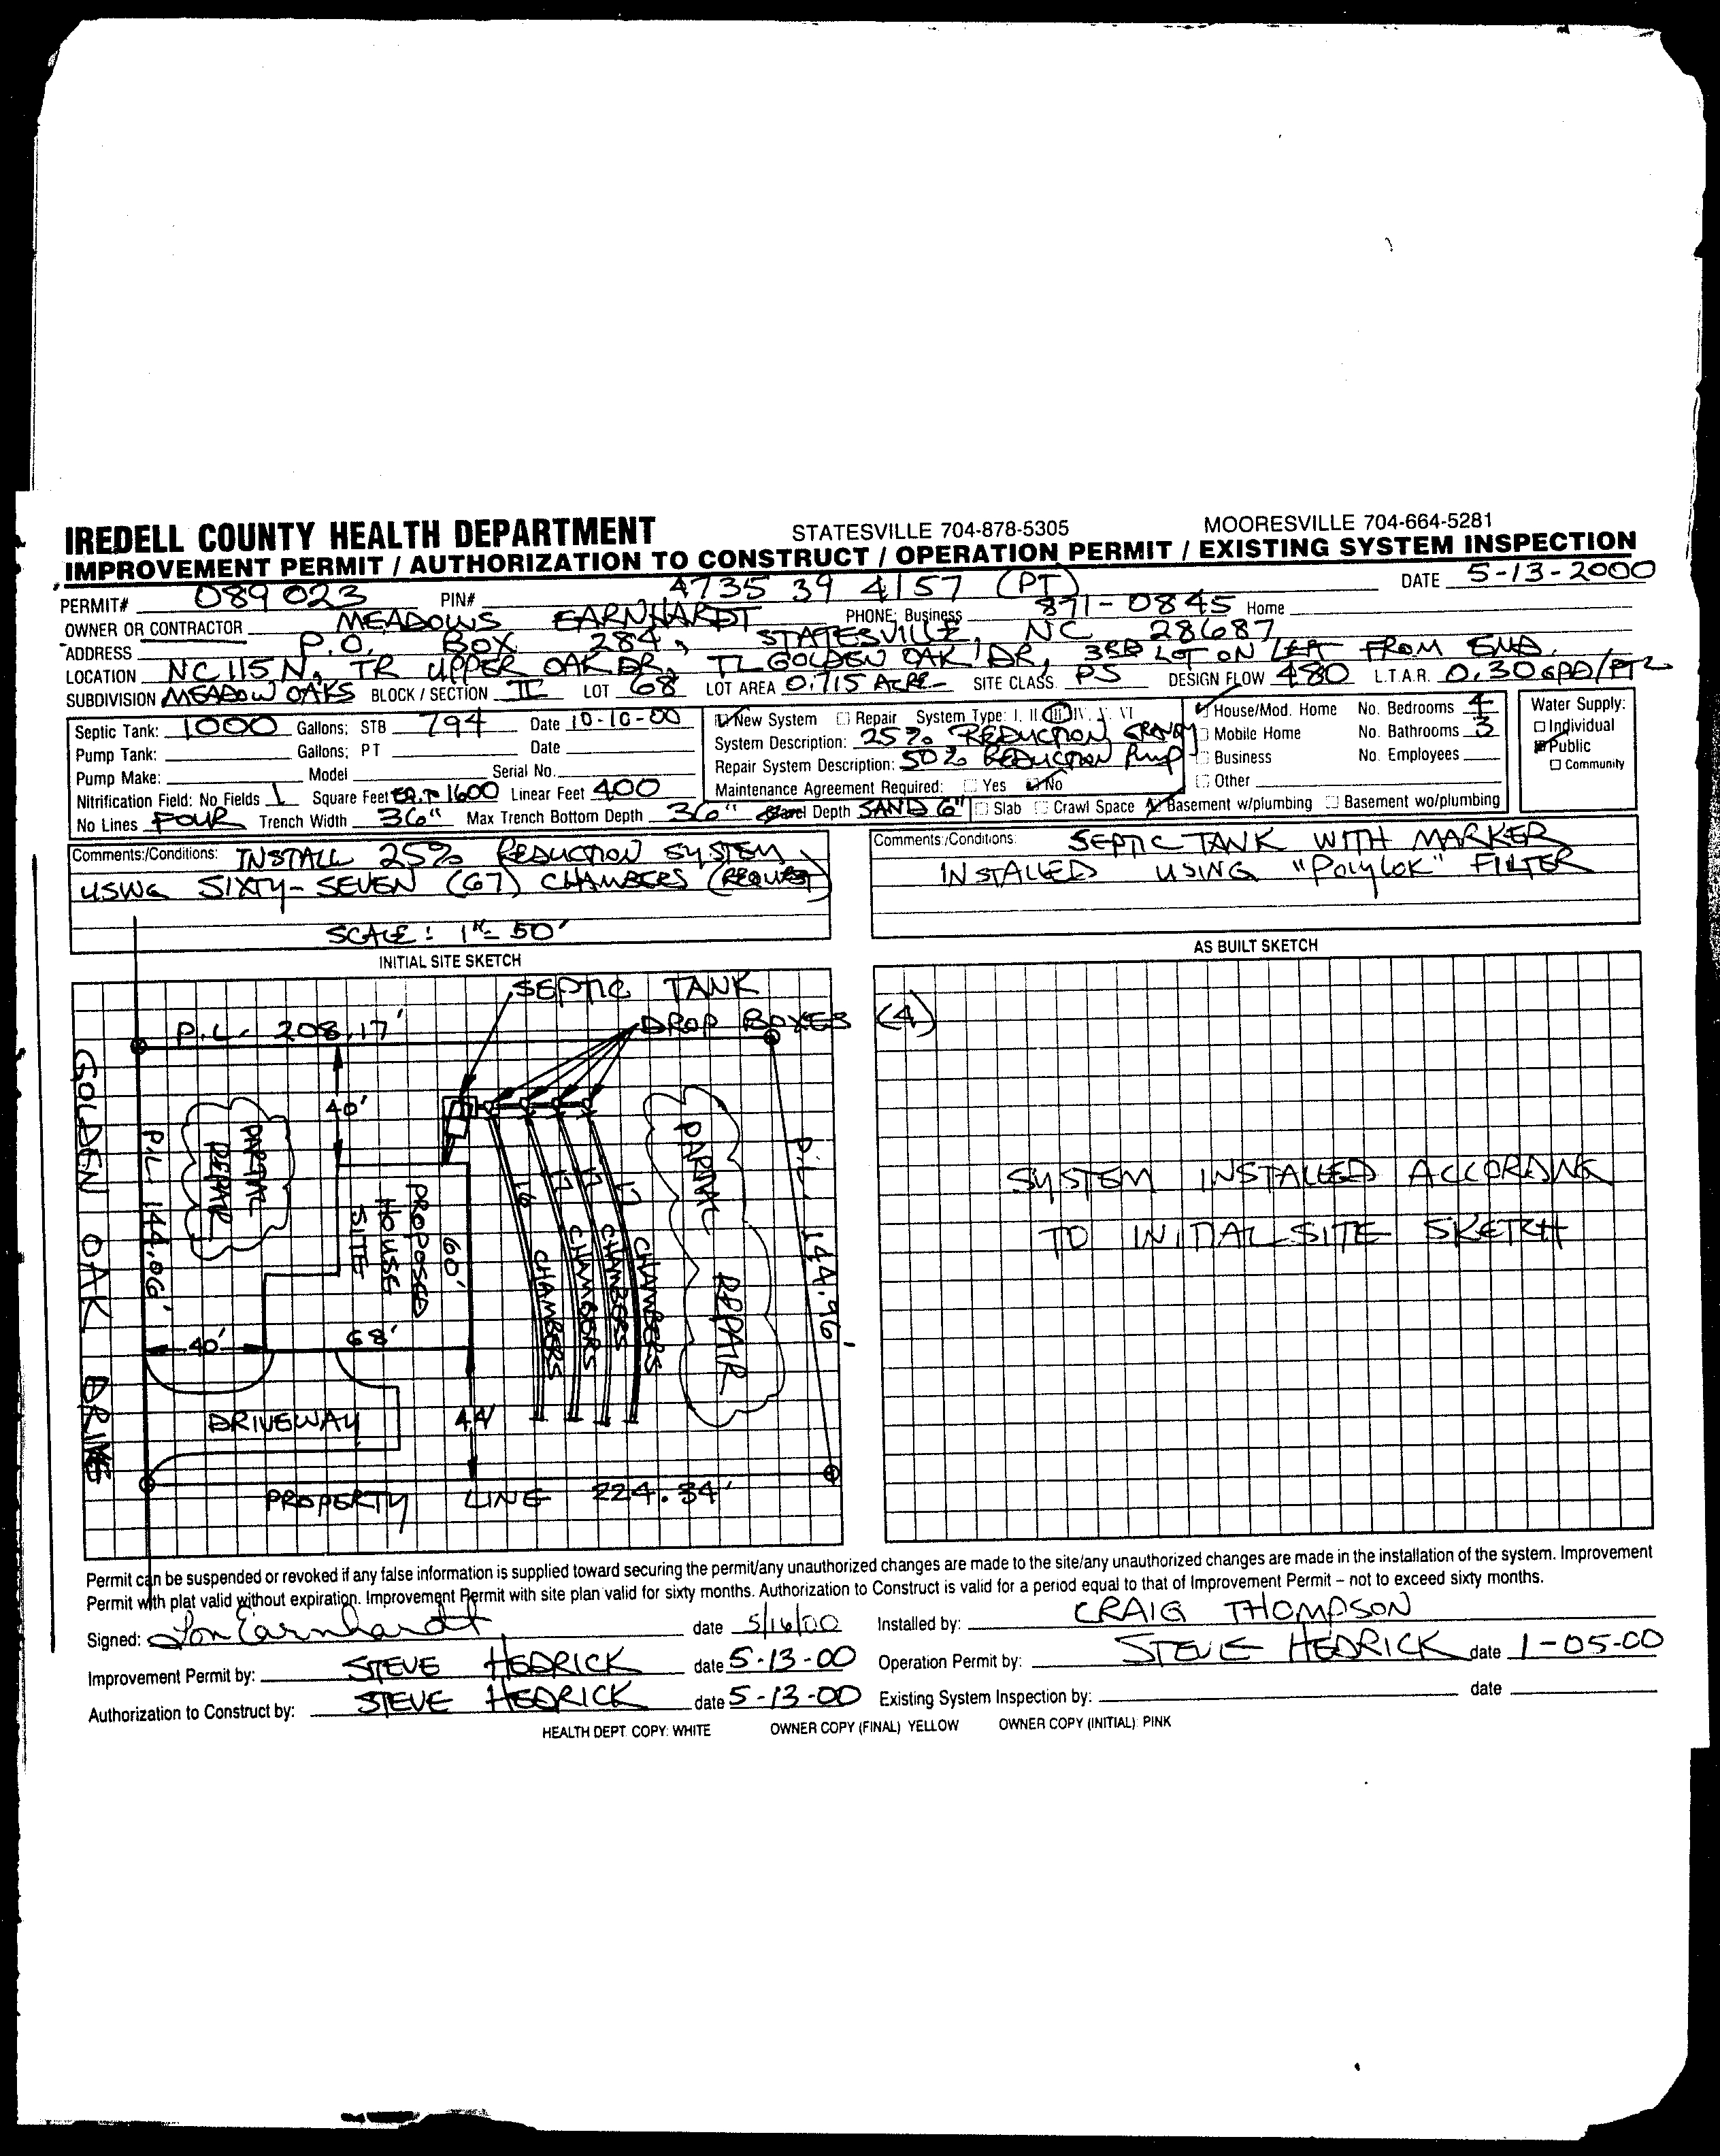 IREDELL COUNTY HEALTH DEPARTMENT STATESVILLE 704-878-5305 MOORESVILLE 704-664-5281
IMPROVEMENT PERMIT / AUTHORIZATION TO CONSTRUCT / OPERATION PERMIT / EXISTING SYSTEM INSPECTION
PERMIT# 089023 PIN# 4735 39 4157 (PT) DATE 5-13-2000
OWNER OR CONTRACTOR MEADOWS EARNHARDT PHONE: Business 871-0845 Home
ADDRESS P.O. BOX 284, STATESVILLE, NC 28687
LOCATION NC 115 N, TR UPPER OAK DR, TL GOLDEN OAK DR, 3RD LOT ON LEFT FROM END.
SUBDIVISION MEADOW OAKS BLOCK / SECTION II LOT 68 LOT AREA 0.715 ACRE SITE CLASS. PS DESIGN FLOW 480 L.T.A.R. 0.30 GPD/FT2
Septic Tank: 1000 Gallons; STB 794 Date 10-10-00
Pump Tank: Gallons; PT Date
Pump Make: Model Serial No.
Nitrification Field: No Fields 1 Square Feet 1600 Linear Feet 400
No Lines FOUR Trench Width 36" Max Trench Bottom Depth 36" Gravel Depth SAND 6"
New System Repair System Type: I, II, III, IV, V, VI
System Description: 25% REDUCTION GRAVITY
Repair System Description: 50% REDUCTION PUMP
Maintenance Agreement Required: Yes No
Slab Crawl Space Basement w/plumbing Basement wo/plumbing
House/Mod. Home No. Bedrooms 4
Mobile Home No. Bathrooms 3
Business No. Employees
Other
Water Supply:
Individual
Public
Community
Comments:/Conditions: INSTALL 25% REDUCTION SYSTEM
USING SIXTY-SEVEN (67) CHAMBERS (REQUEST)
SCALE: 1"= 50'
Comments:/Conditions: SEPTIC TANK WITH MARKER
INSTALLED USING "POLYLOK" FILTER
INITIAL SITE SKETCH
SEPTIC TANK
DROP BOXES (4)
P.L. 208.17'
40'
GOLDEN OAK DRIVE
P.L. 144.06'
PARTIAL REPAIR
PROPOSED HOUSE SITE
60'
68'
40'
16 CHAMBERS
17 CHAMBERS
17 CHAMBERS
17 CHAMBERS
PARTIAL REPAIR
P.L. 144.96'
DRIVEWAY
44'
PROPERTY LINE 224.34'
AS BUILT SKETCH
SYSTEM INSTALLED ACCORDING
TO INITIAL SITE SKETCH
Permit can be suspended or revoked if any false information is supplied toward securing the permit/any unauthorized changes are made to the site/any unauthorized changes are made in the installation of the system. Improvement
Permit with plat valid without expiration. Improvement Permit with site plan valid for sixty months. Authorization to Construct is valid for a period equal to that of Improvement Permit – not to exceed sixty months.
Signed: Lon Earnhardt date 5/16/00 Installed by: CRAIG THOMPSON
Improvement Permit by: STEVE HEDRICK date 5-13-00 Operation Permit by: STEVE HEDRICK date 1-05-00
Authorization to Construct by: STEVE HEDRICK date 5-13-00 Existing System Inspection by: date
HEALTH DEPT. COPY: WHITE OWNER COPY (FINAL) YELLOW OWNER COPY (INITIAL) PINK